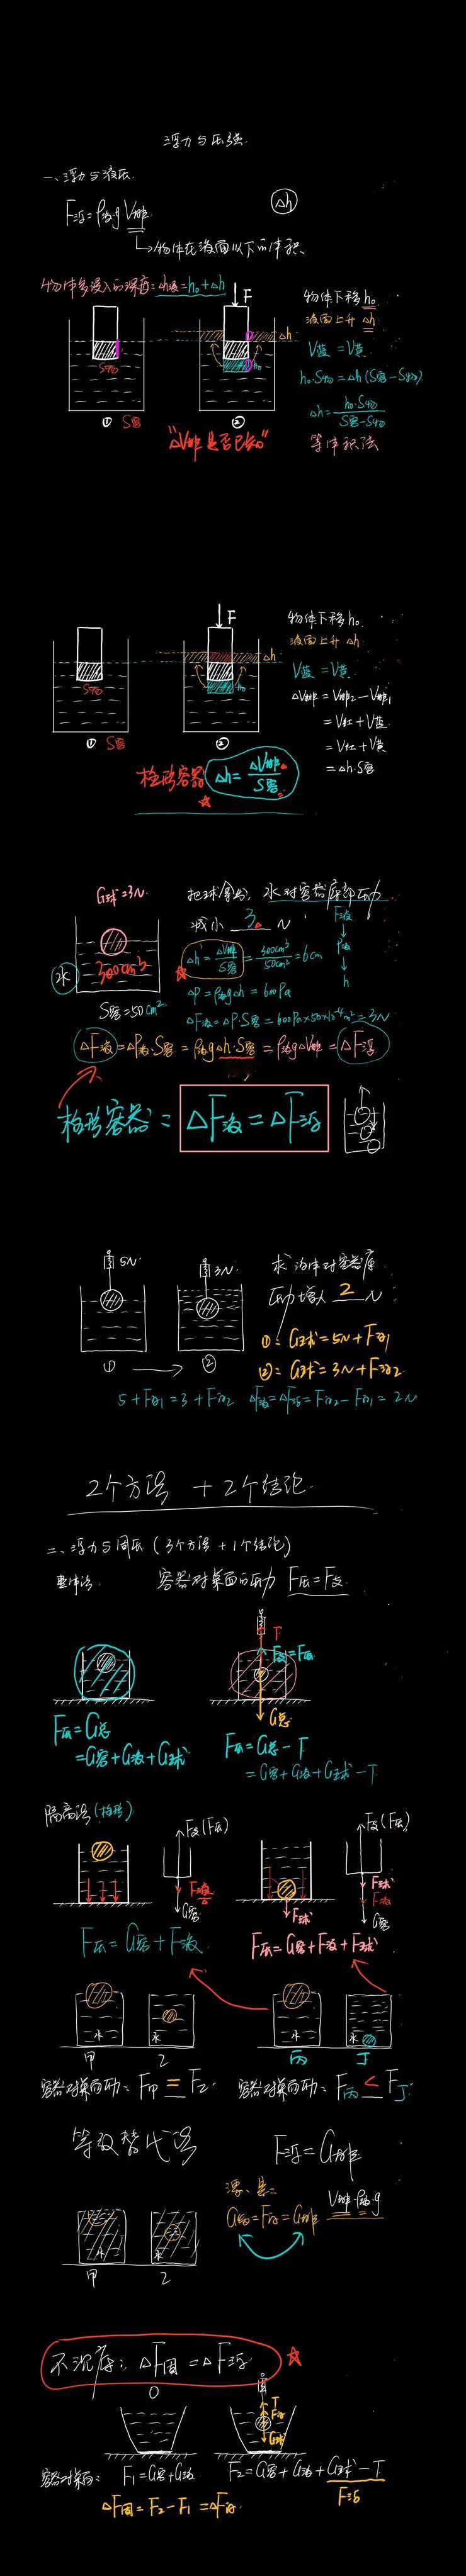 浮力与压强
一、浮力与液压
F浮=ρ液g V排
Δh
↳物体在液面以下的体积
物体多浸入的深度：h浸=h₀+Δh
F
物体下移h₀
液面上升Δh
Δh
V蓝=V黄
h₀
S物
h₀·S物=Δh(S容-S物)
① S容
②
Δh=h₀·S物/(S容-S物)
"ΔV排是否已知"
等体积法
F
物体下移h₀
液面上升Δh
Δh
V蓝=V黄
h₀
S物
ΔV排=V排2-V排1
=V红+V蓝
① S容
②
=V红+V黄
柱形容器 Δh=ΔV排/S容
=Δh·S容
G球=3N
把球拿出，水对容器底部压力
减小 3 N
F液
↓
P液
↓
h
水
300cm³
Δh=ΔV排/S容=300cm³/50cm²=6cm
S容=50cm²
ΔP=ρ液gΔh=600Pa
ΔF液=ΔP·S容=600Pa×50×10⁻⁴m²=3N
ΔF液=ΔP液·S容=ρ液gΔh·S容=ρ液gΔV排=ΔF浮
柱形容器：ΔF液=ΔF浮
5N
3N
求液体对容器底
压力增大 2 N
①：G球=5N+F浮1
②：G球=3N+F浮2
① → ②
5+F浮1=3+F浮2 ΔF液=ΔF浮=F浮2-F浮1=2N
2个方法 +2个结论
二、浮力与固压（3个方法+1个结论）
整体法： 容器对桌面的压力 F压=F支
T
F支=F压
G总
F压=G总
=G容+G液+G球
F压=G总-T
=G容+G液+G球-T
隔离法(柱形)
F支(F压)
F液
G容
F球
F支(F压)
F球
F液
G容
F压=G容+F液
F压=G容+F液+F球
水
水
水
水
甲
乙
丙
丁
容器对桌面压力：F甲 = F乙
容器对桌面压力：F丙 < F丁
等效替代法
F浮=G排
漂、悬：
G物=F浮=G排
V排·ρ液·g
水
水
甲
乙
不沉底：ΔF固=ΔF浮
T
F浮
G球
容器对桌面：F₁=G容+G液
F₂=G容+G液+G球-T
F浮
ΔF固=F₂-F₁=ΔF浮